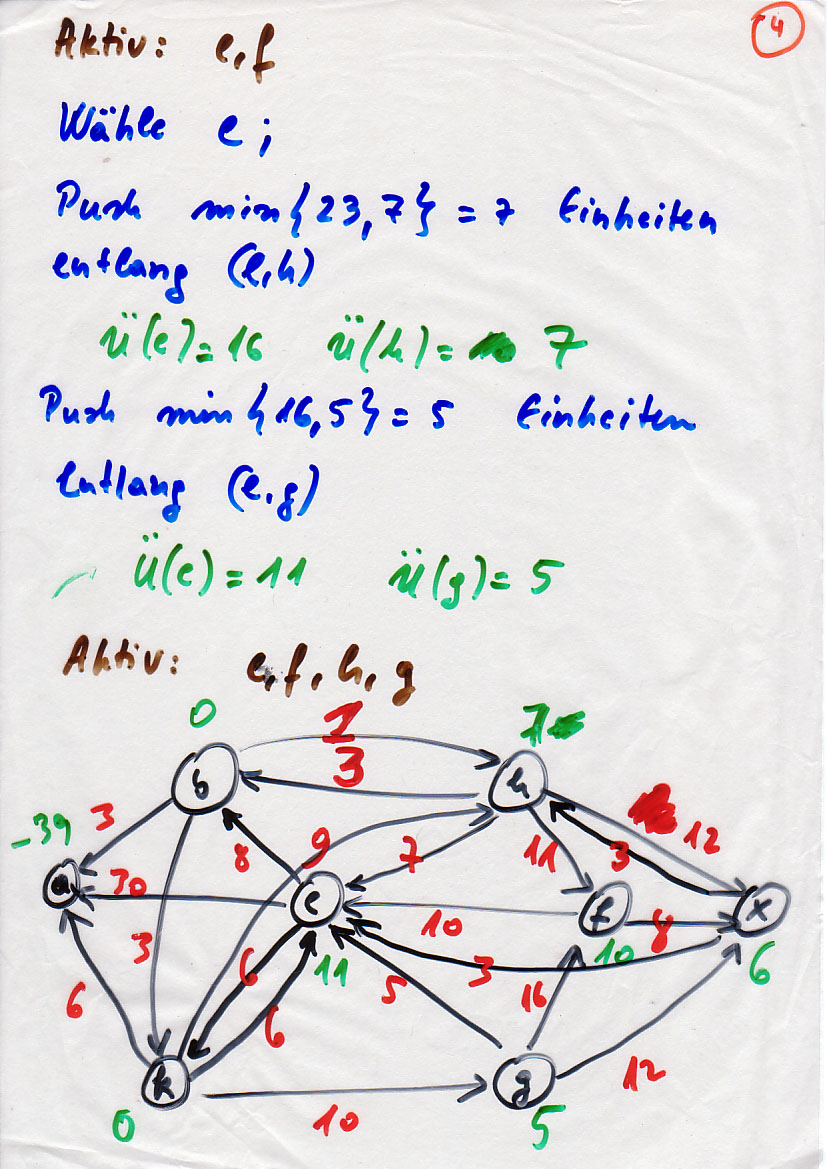 4
Aktiv: e,f
Wähle e;
Push min{23,7} = 7 Einheiten
entlang (e,h)
ü(e)=16 ü(h)= 7
Push min{16,5} = 5 Einheiten
entlang (e,g)
ü(e)=11 ü(g)=5
Aktiv: e,f,h,g
0 1 7
3
b h
-39 3 8 9 7 11 3 12
a 30 e 10 f 8 x
3 6 11 10 6
6 6 5 3 16
k g 12
0 10 5